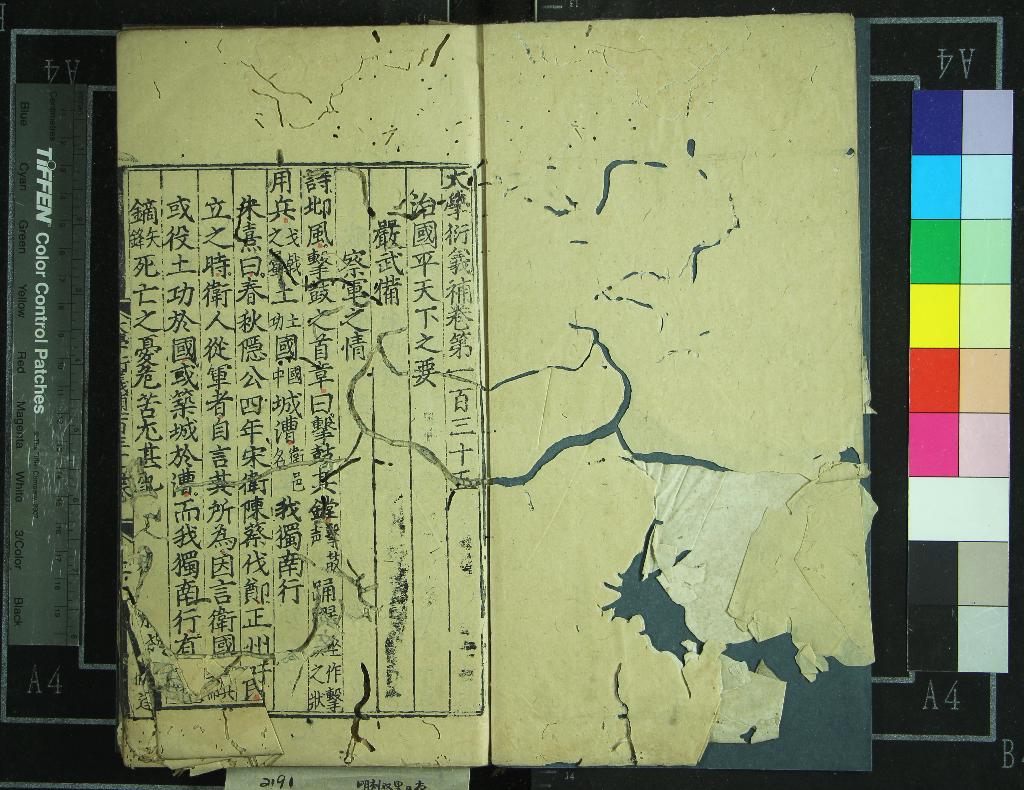 大學衍義補卷第一百三十五
治國平天下之要
嚴武備
察軍之情
詩邶風擊鼓之首章曰擊鼓其鏜擊鼓聲踊躍坐作擊之狀
用兵戈戟之屬土土功國國中城漕衛邑名我獨南行
朱熹曰春秋隱公四年宋衛陳蔡伐鄭正州吁
立之時衛人從軍者自言其所為因言衛國民
或役土功於國或築城於漕而我獨南行有
鋒矢鏑死亡之憂危苦尤甚
TIFFEN Color Control Patches
Blue Cyan Green Yellow Red Magenta White 3/Color Black
Centimetres
A4
A4
A4
A4
B
2191